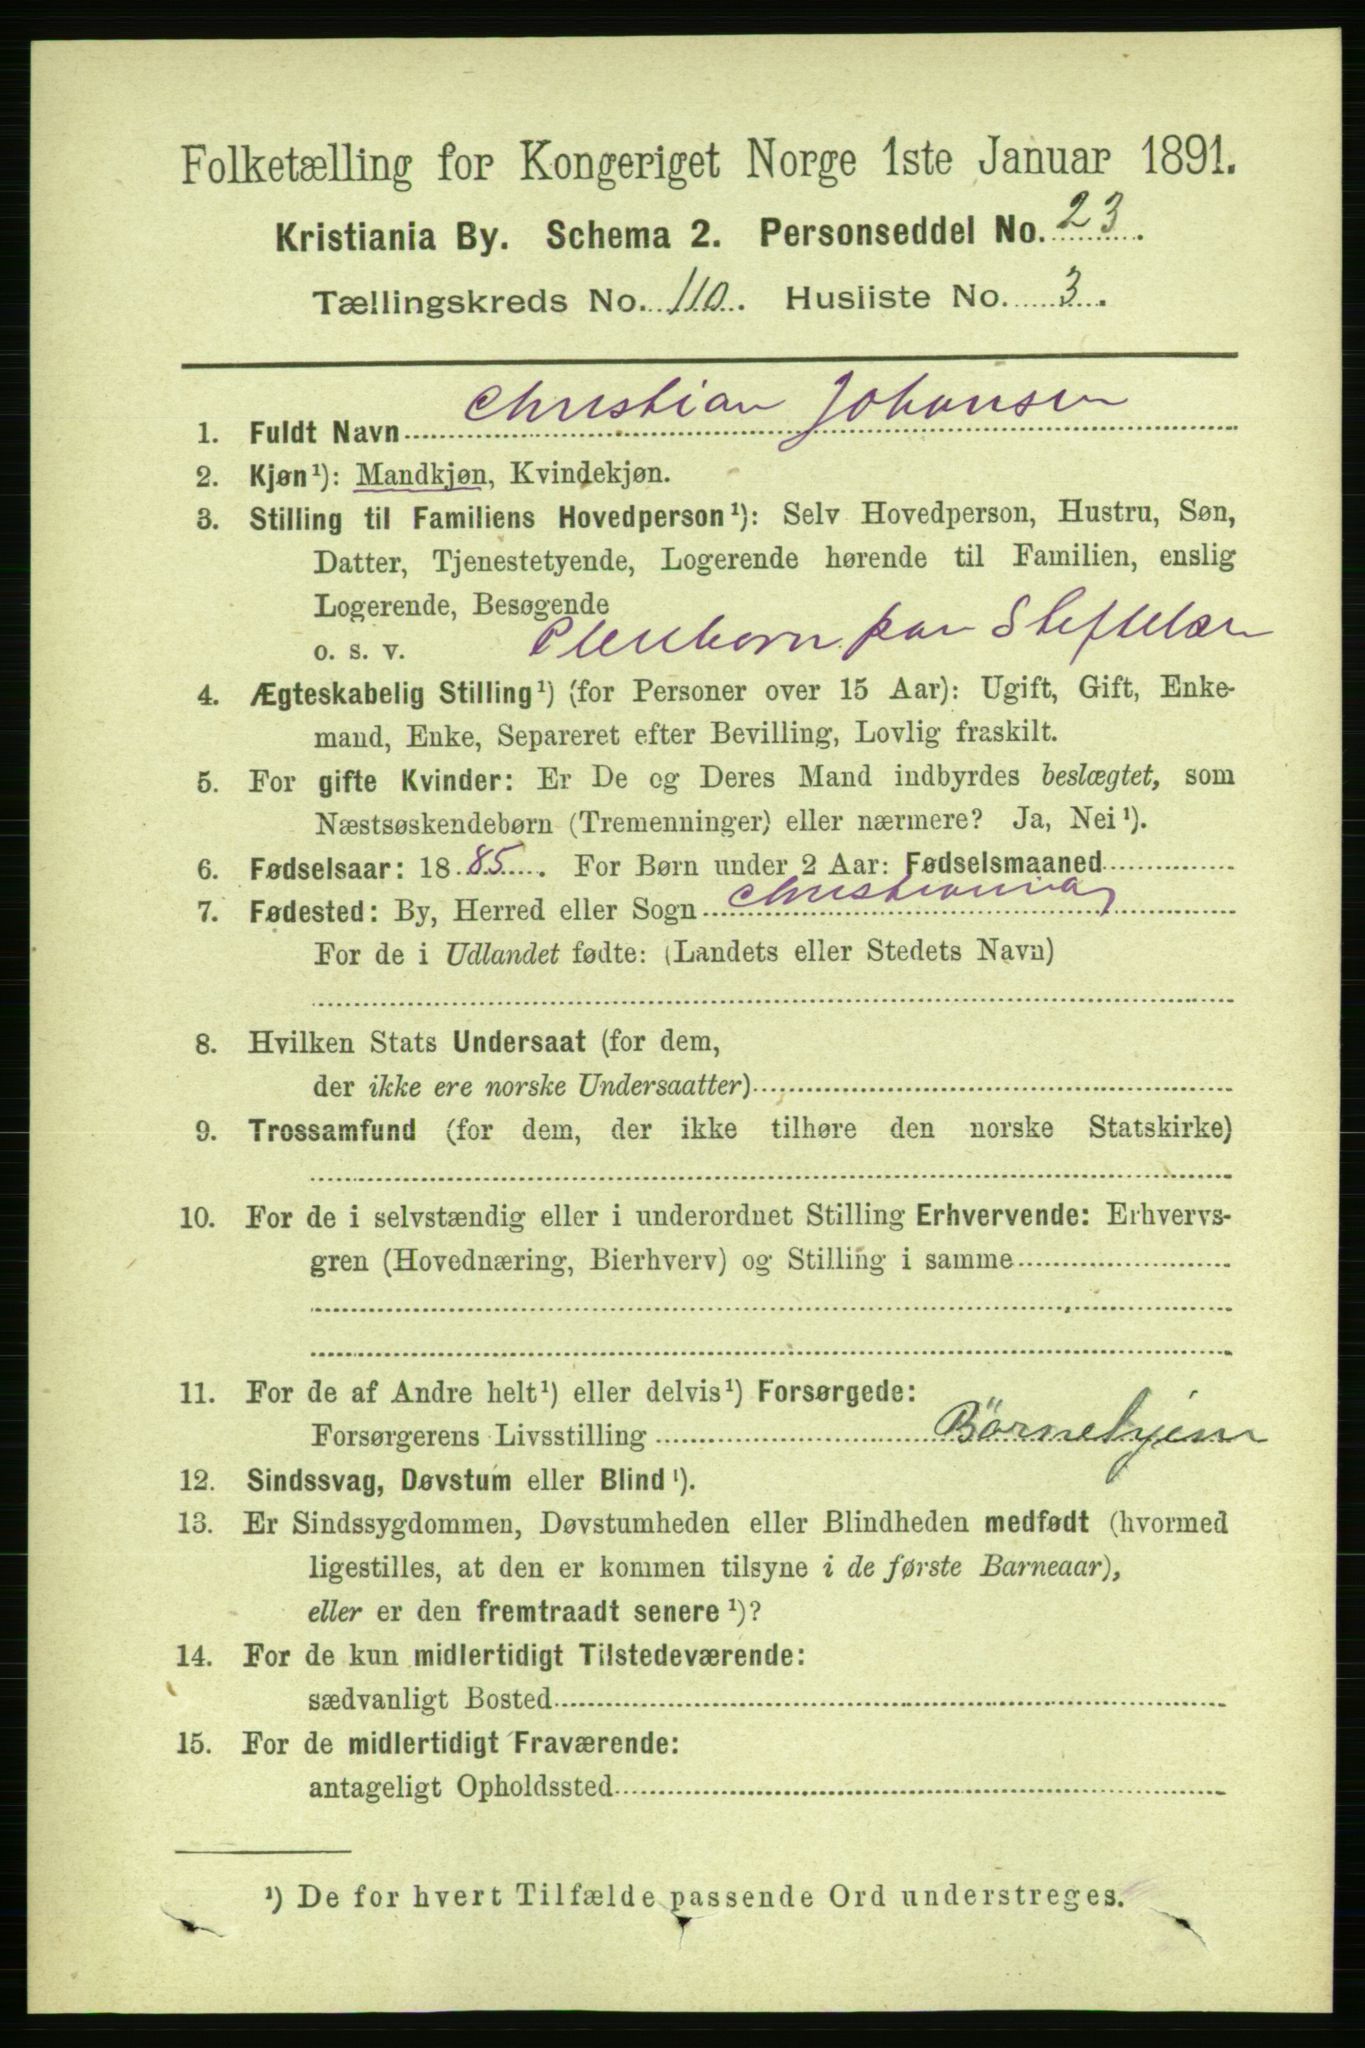 Folketælling for Kongeriget Norge 1ste Januar 1891.
Kristiania By. Schema 2. Personseddel No. 23.
Tællingskreds No. 110. Husliste No. 3.
1. Fuldt Navn Christian Johansen
2. Kjøn¹): Mandkjøn, Kvindekjøn.
3. Stilling til Familiens Hovedperson¹): Selv Hovedperson, Hustru, Søn,
Datter, Tjenestetyende, Logerende hørende til Familien, enslig
Logerende, Besøgende
o. s. v. Pleiebørn paa Stiftelsen
4. Ægteskabelig Stilling¹) (for Personer over 15 Aar): Ugift, Gift, Enke-
mand, Enke, Separeret efter Bevilling, Lovlig fraskilt.
5. For gifte Kvinder: Er De og Deres Mand indbyrdes beslægtet, som
Næstsøskendebørn (Tremenninger) eller nærmere? Ja, Nei¹).
6. Fødselsaar: 1885. For Børn under 2 Aar: Fødselsmaaned
7. Fødested: By, Herred eller Sogn Christiania
For de i Udlandet fødte: (Landets eller Stedets Navn)
8. Hvilken Stats Undersaat (for dem,
der ikke ere norske Undersaatter)
9. Trossamfund (for dem, der ikke tilhøre den norske Statskirke)
10. For de i selvstændig eller i underordnet Stilling Erhvervende: Erhvervs-
gren (Hovednæring, Bierhverv) og Stilling i samme
11. For de af Andre helt¹) eller delvis¹) Forsørgede:
Forsørgerens Livsstilling Börnehjem
12. Sindssvag, Døvstum eller Blind¹).
13. Er Sindssygdommen, Døvstumheden eller Blindheden medfødt (hvormed
ligestilles, at den er kommen tilsyne i de første Barneaar),
eller er den fremtraadt senere¹)?
14. For de kun midlertidigt Tilstedeværende:
sædvanligt Bosted
15. For de midlertidigt Fraværende:
antageligt Opholdssted
¹) De for hvert Tilfælde passende Ord understreges.